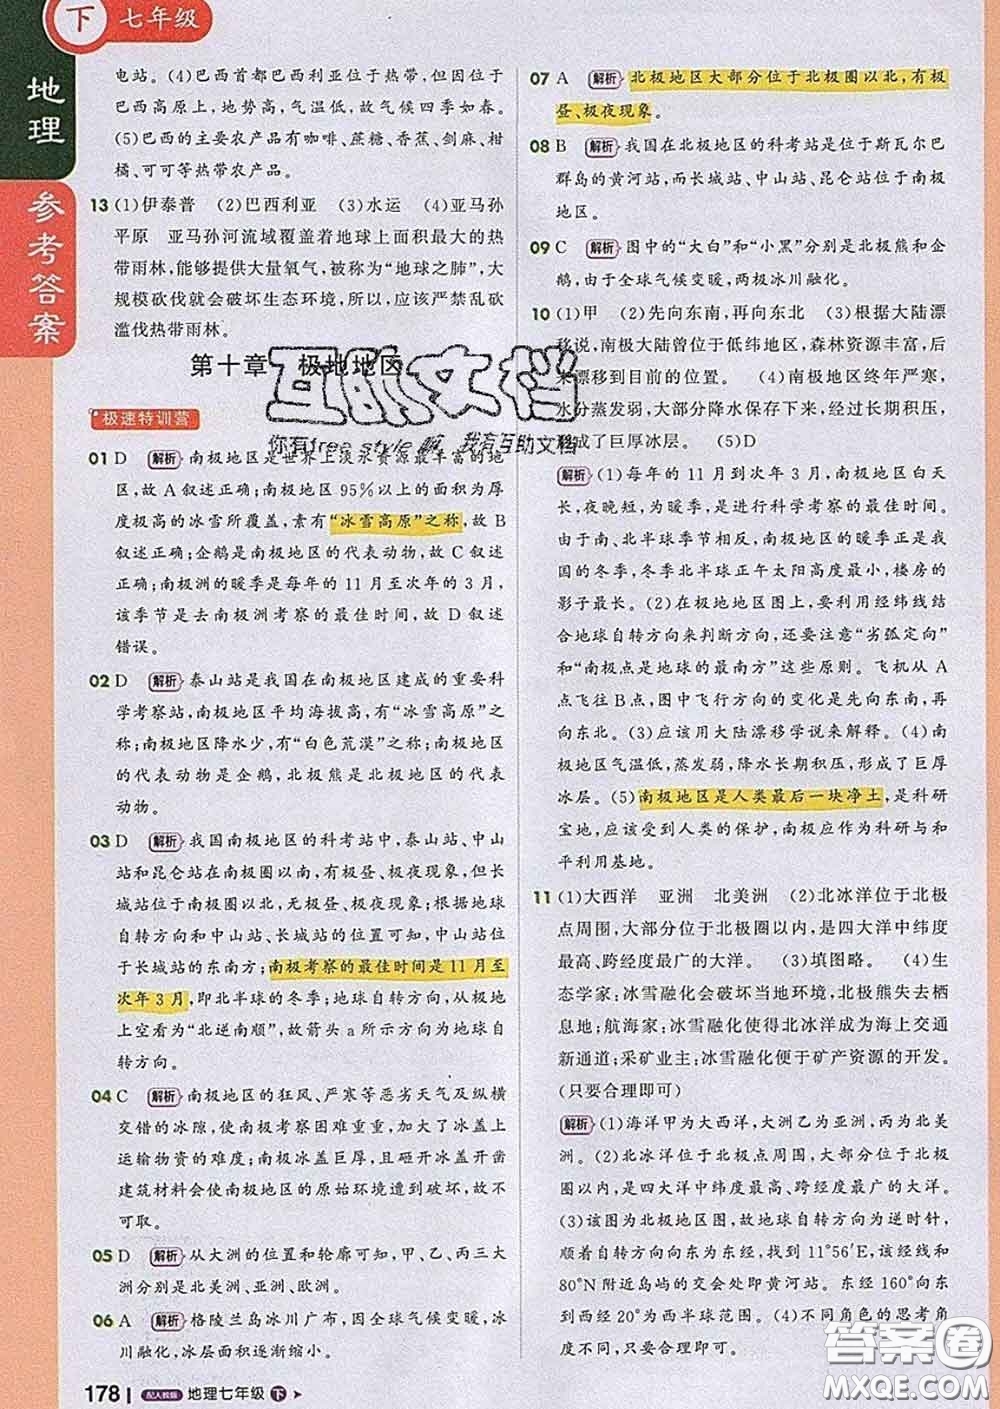 下 七年级
地理
参考答案
电站。(4)巴西首都巴西利亚位于热带,但因位于
巴西高原上,地势高,气温低,故气候四季如春。
(5)巴西的主要农产品有咖啡、蔗糖、香蕉、剑麻、柑
橘、可可等热带农产品。
13 (1)伊泰普 (2)巴西利亚 (3)水运 (4)亚马孙
平原 亚马孙河流域覆盖着地球上面积最大的热
带雨林,能够提供大量氧气,被称为“地球之肺”,大
规模砍伐就会破坏生态环境,所以,应该严禁乱砍
滥伐热带雨林。
第十章 极地地区
极速特训营
01 D 解析 南极地区是世界上淡水资源最丰富的地
区,故A叙述正确;南极地区95%以上的面积为厚
度极高的冰雪所覆盖,素有“冰雪高原”之称,故B
叙述正确;企鹅是南极地区的代表动物,故C叙述
正确;南极洲的暖季是每年的11月至次年的3月,
该季节是去南极洲考察的最佳时间,故D叙述
错误。
02 D 解析 泰山站是我国在南极地区建成的重要科
学考察站,南极地区平均海拔高,有“冰雪高原”之
称;南极地区降水少,有“白色荒漠”之称;南极地区
的代表动物是企鹅,北极熊是北极地区的代表
动物。
03 D 解析 我国南极地区的科考站中,泰山站、中山
站和昆仑站在南极圈以内,有极昼、极夜现象,但长
城站位于南极圈以北,无极昼、极夜现象;根据地球
自转方向和中山站、长城站的位置可知,中山站位
于长城站的东南方;南极考察的最佳时间是11月至
次年3月,即北半球的冬季;地球自转方向,从极地
上空看为“北逆南顺”,故箭头a所示方向为地球自
转方向。
04 C 解析 南极地区的狂风、严寒等恶劣天气及纵横
交错的冰隙,使南极考察困难重重,加大了冰盖上
运输物资的难度;南极冰盖巨厚,且砸开冰盖开凿
建筑材料会使南极地区的原始环境遭到破坏,故不
可取。
05 D 解析 从大洲的位置和轮廓可知,甲、乙、丙三大
洲分别是北美洲、亚洲、欧洲。
06 A 解析 格陵兰岛冰川广布,因全球气候变暖,冰
川融化,冰层面积逐渐缩小。
178 配人教版 地理七年级 下
07 A 解析 北极地区大部分位于北极圈以北,有极
昼、极夜现象。
08 B 解析 我国在北极地区的科考站是位于斯瓦尔巴
群岛的黄河站,而长城站、中山站、昆仑站在南极
地区。
09 C 解析 图中的“大白”和“小黑”分别是北极熊和企
鹅,由于全球气候变暖,两极冰川融化。
10 (1)甲 (2)先向东南,再向东北 (3)根据大陆漂
移说,南极大陆曾位于低纬地区,森林资源丰富,后
来漂移到目前的位置。 (4)南极地区终年严寒,
水分蒸发弱,大部分降水保存下来,经过长期积压,
形成了巨厚冰层。 (5)D
解析 (1)每年的11月到次年3月,南极地区白天
长,夜晚短,为暖季,是进行科学考察的最佳时间。
由于南、北半球季节相反,南极地区的暖季正是我
国的冬季,冬季北半球正午太阳高度最小,楼房的
影子最长。(2)在极地地区图上,要利用经纬线结
合地球自转方向来判断方向,还要注意“劣弧定向”
和“南极点是地球的最南方”这些原则。飞机从A
点飞往B点,图中飞行方向的变化是先向东南,再
向东北。(3)应该用大陆漂移学说来解释。(4)南
极地区气温低,蒸发弱,降水长期积压,形成了巨厚
冰层。(5)南极地区是人类最后一块净土,是科研
宝地,应该受到人类的保护,南极应作为科研与和
平利用基地。
11 (1)大西洋 亚洲 北美洲 (2)北冰洋位于北极
点周围,大部分位于北极圈以内,是四大洋中纬度
最高、跨经度最广的大洋。 (3)填图略。 (4)生
态学家:冰雪融化会破坏当地环境,北极熊失去栖
息地;航海家:冰雪融化使得北冰洋成为海上交通
新通道;采矿业主:冰雪融化便于矿产资源的开发。
(只要合理即可)
解析 (1)海洋甲为大西洋,大洲乙为亚洲,丙为北美
洲。(2)北冰洋位于北极点周围,大部分位于北极
圈以内,是四大洋中纬度最高、跨经度最广的大洋。
(3)该图为北极地区图,故地球自转方向为逆时针,
顺着自转方向向东为东经,找到11°56′E,该经线和
80°N附近岛屿的交会处即黄河站。东经160°向东
到西经20°为西半球范围。(4)不同角色的思考角
度不同,只要合理即可。
互助文档
你有free style嘛,我有互助文档
答案圈
MXQE.COM